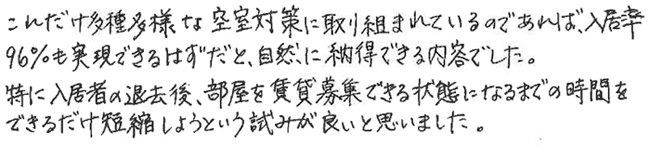 これだけ多種多様な空室対策に取り組まれているのであれば、入居率
96%も実現できるはずだと、自然に納得できる内容でした。
特に入居者の退去後、部屋を賃貸募集できる状態になるまでの時間を
できるだけ短縮しようという試みが良いと思いました。